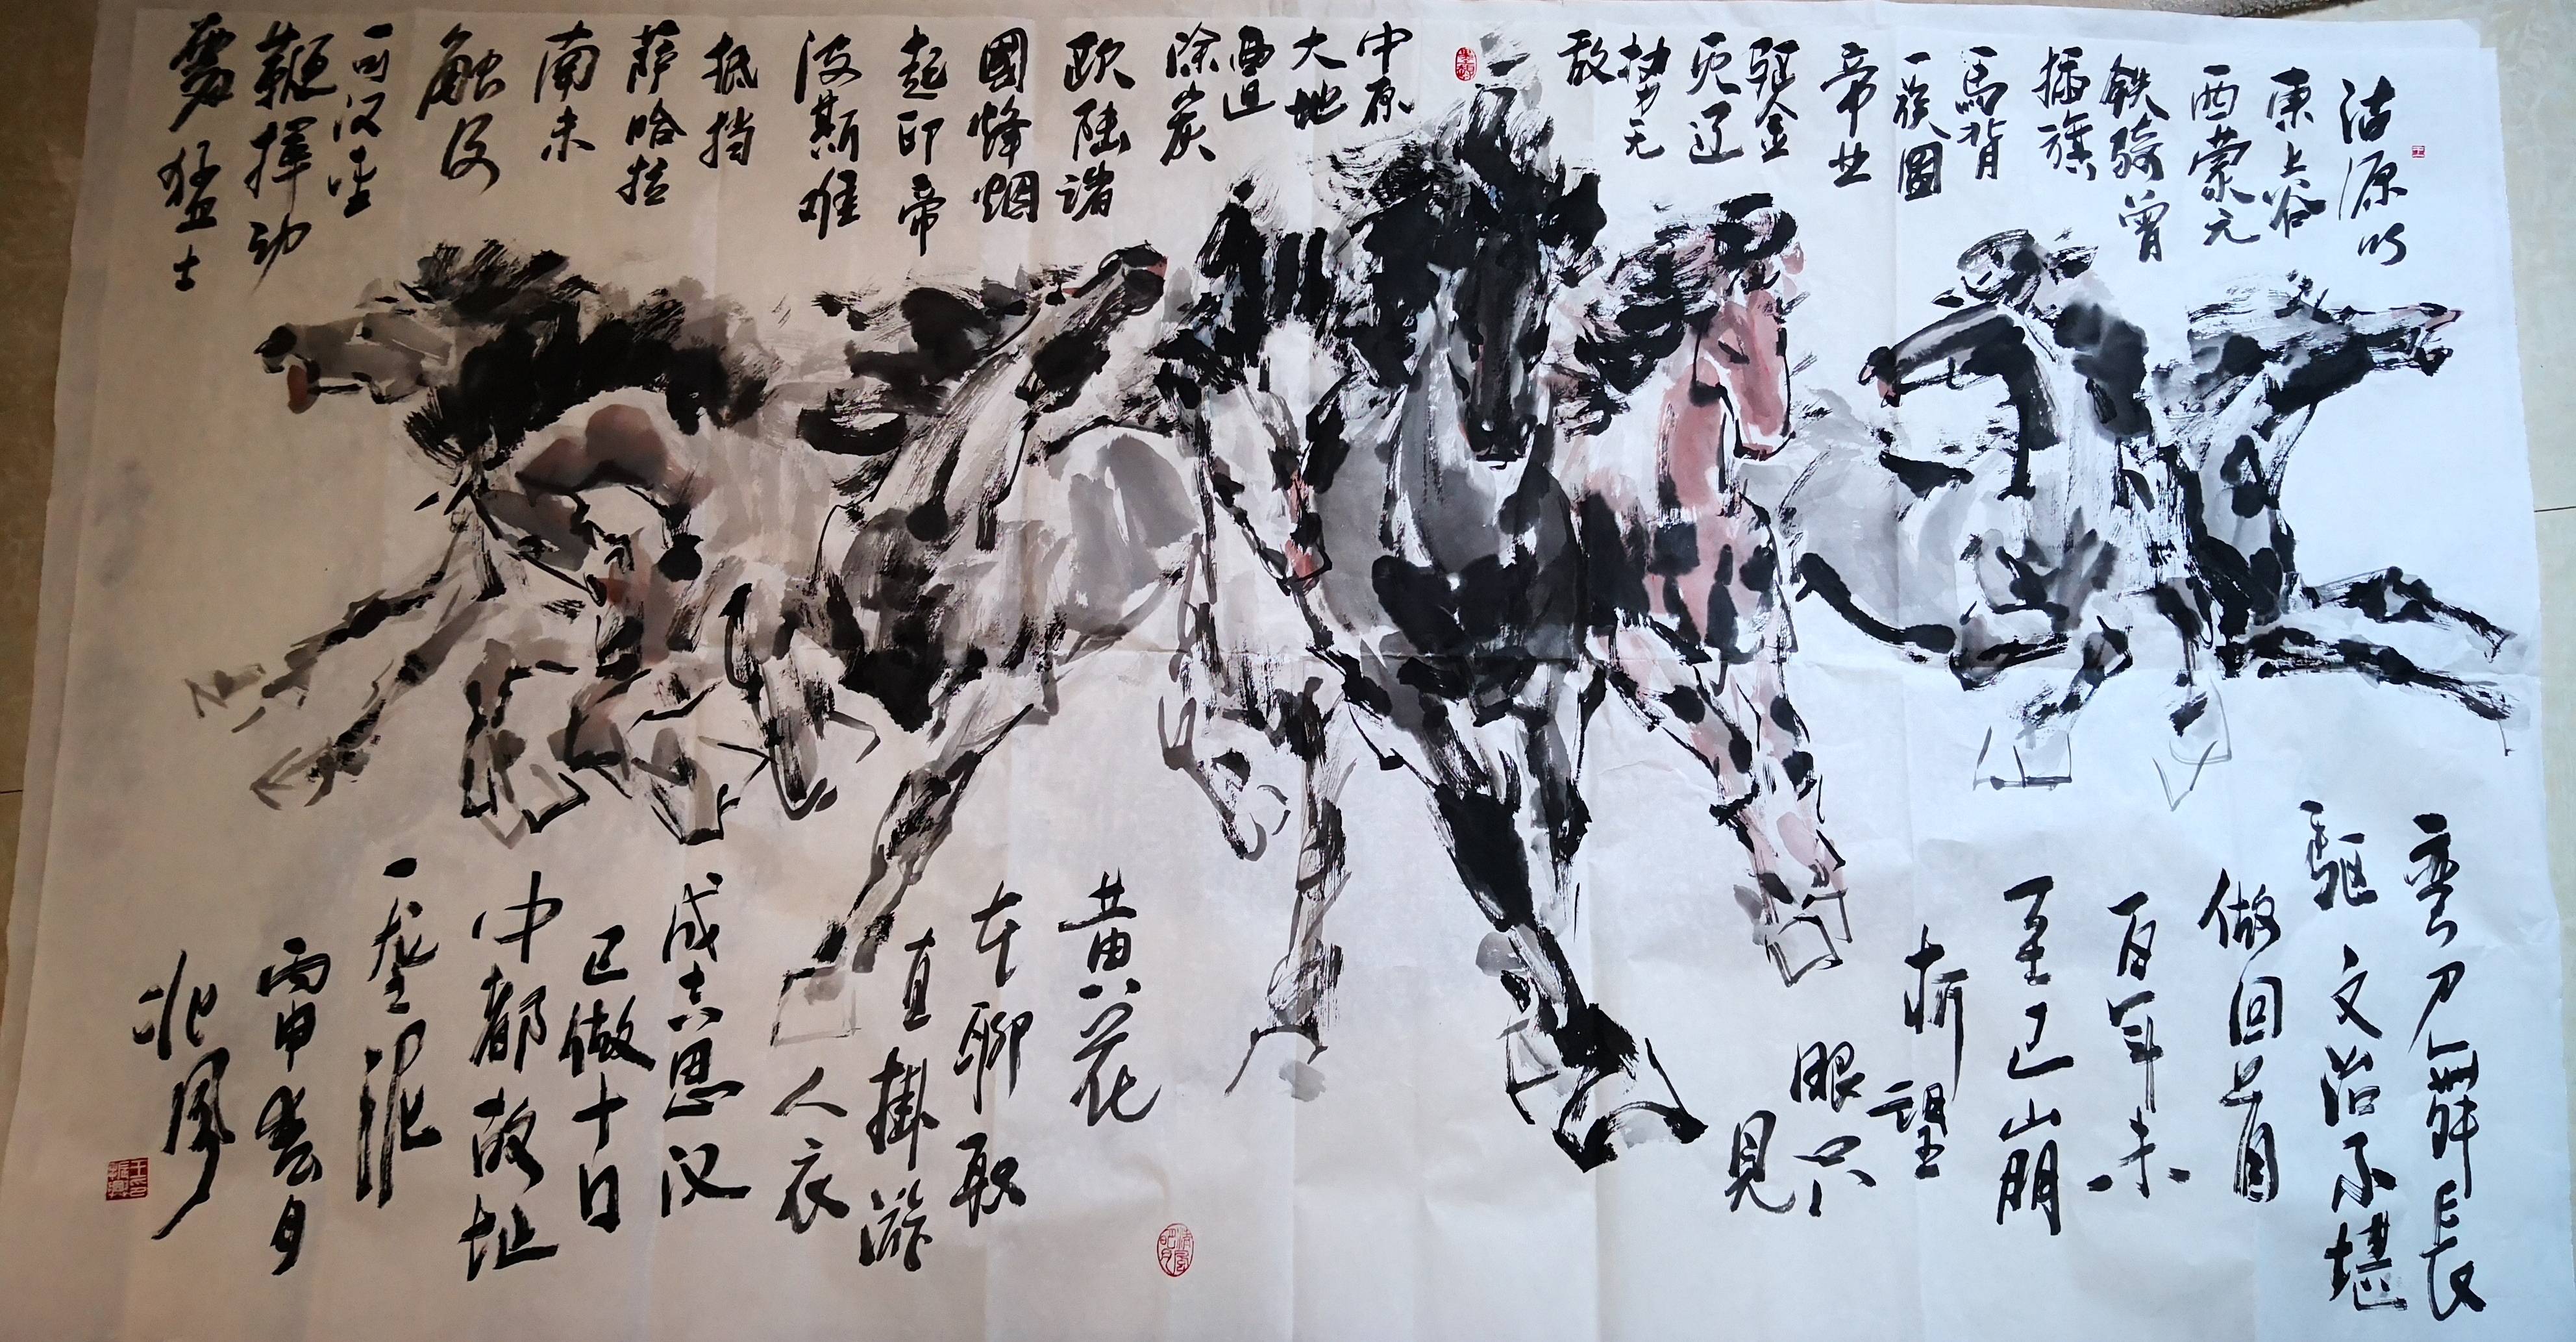 沽源以
東上谷
西蒙元
鉄骑曾
插旗
馬背
一族圖
帝业
驱金
辽
势无
敌
中原
大地
西
涂炭
欧陆诸
國烽烟
起印帝
波斯难
抵挡
萨哈拉
南未
触及
可汉坐
鞭揮动
猛士
弯刀舞長
驅文治不堪
做回首
百年未
至已山崩
折望
眼只
見
黄花
在聊取
直掛游
人衣
成吉思汉
已做十日
中都故址
一 泥
丙申春月
北風